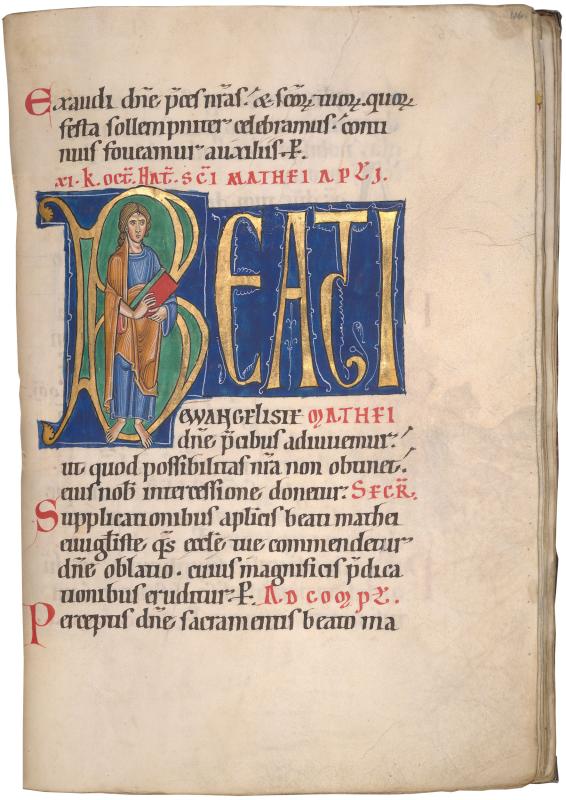 Exaudi dn̄e p̄ces nr̄as. & sc̄oꝝ tuoꝝ. quoꝝ
festa sollempniter celebramus. conti
nuis foveamur auxiliis. P̲.
XI. K. OCT̄. NAT̄. SC̄I MATHEI APL̄I.
BEATI
EWANGELISTE MATHEI
dn̄e p̄cibus adiuvemur.
ut quod possibilitas nr̄a non obtinet.
eius nob̄ intercessione donetur. SECR̄.
Supplicationibus aplicis beati mathei
euuḡliste q̄s eccl̄e tue commendetur
dn̄e oblatio. cuius magnificis p̄dica
tionibus eruditur. P̲. AD COMPL̄.
Perceptis dn̄e sacramentis beato ma